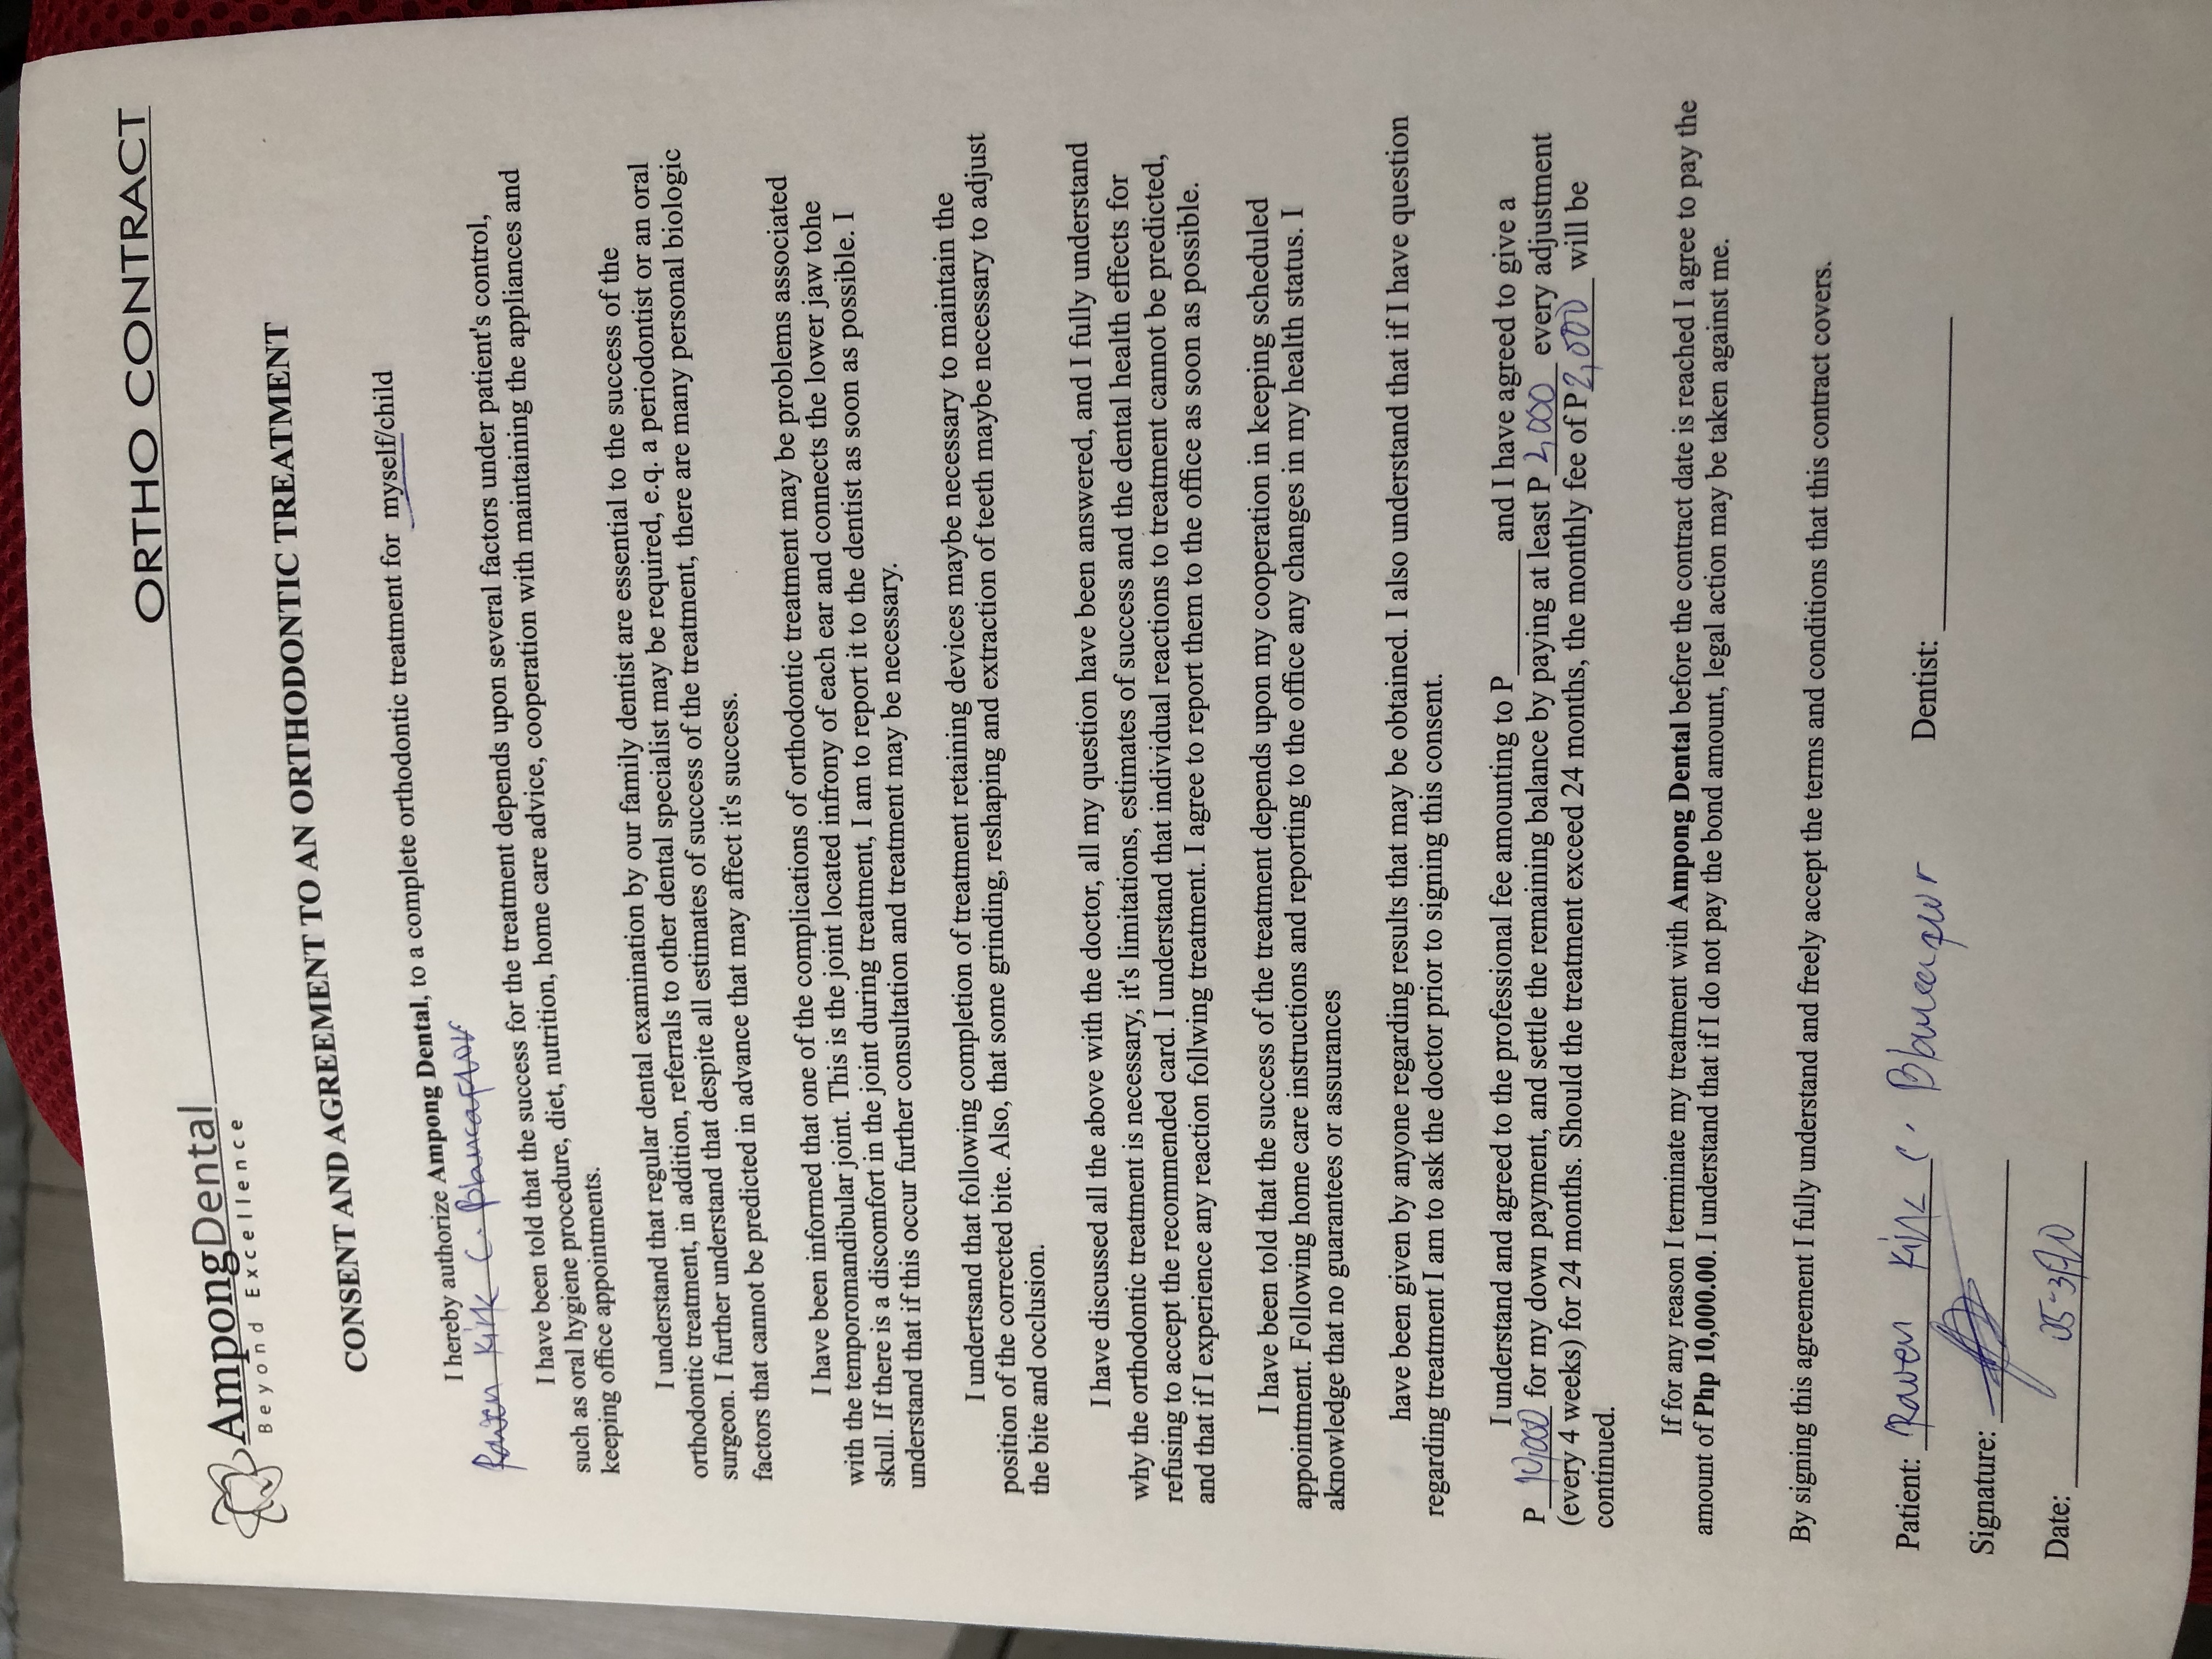 ORTHO CONTRACT
AmpongDental
Beyond Excellence
CONSENT AND AGREEMENT TO AN ORTHODONTIC TREATMENT
I hereby authorize Ampong Dental, to a complete orthodontic treatment for myself/child
Raven Kirk C. Blancaflor
I have been told that the success for the treatment depends upon several factors under patient's control,
such as oral hygiene procedure, diet, nutrition, home care advice, cooperation with maintaining the appliances and
keeping office appointments.
I understand that regular dental examination by our family dentist are essential to the success of the
orthodontic treatment, in addition, referrals to other dental specialist may be required, e.q. a periodontist or an oral
surgeon. I further understand that despite all estimates of success of the treatment, there are many personal biologic
factors that cannot be predicted in advance that may affect it's success.
I have been informed that one of the complications of orthodontic treatment may be problems associated
with the temporomandibular joint. This is the joint located infrony of each ear and connects the lower jaw tohe
skull. If there is a discomfort in the joint during treatment, I am to report it to the dentist as soon as possible. I
understand that if this occur further consultation and treatment may be necessary.
I undertsand that following completion of treatment retaining devices maybe necessary to maintain the
position of the corrected bite. Also, that some grinding, reshaping and extraction of teeth maybe necessary to adjust
the bite and occlusion.
I have discussed all the above with the doctor, all my question have been answered, and I fully understand
why the orthodontic treatment is necessary, it's limitations, estimates of success and the dental health effects for
refusing to accept the recommended card. I understand that individual reactions to treatment cannot be predicted,
and that if I experience any reaction follwing treatment. I agree to report them to the office as soon as possible.
I have been told that the success of the treatment depends upon my cooperation in keeping scheduled
appointment. Following home care instructions and reporting to the office any changes in my health status. I
aknowledge that no guarantees or assurances
have been given by anyone regarding results that may be obtained. I also understand that if I have question
regarding treatment I am to ask the doctor prior to signing this consent.
I understand and agreed to the professional fee amounting to P________ and I have agreed to give a
P 10,000 for my down payment, and settle the remaining balance by paying at least P 2,000 every adjustment
(every 4 weeks) for 24 months. Should the treatment exceed 24 months, the monthly fee of P 2,000 will be
continued.
If for any reason I terminate my treatment with Ampong Dental before the contract date is reached I agree to pay the
amount of Php 10,000.00. I understand that if I do not pay the bond amount, legal action may be taken against me.
By signing this agreement I fully understand and freely accept the terms and conditions that this contract covers.
Patient: Raven Kirk C. Blancaflor
Dentist:
Signature:
Date: